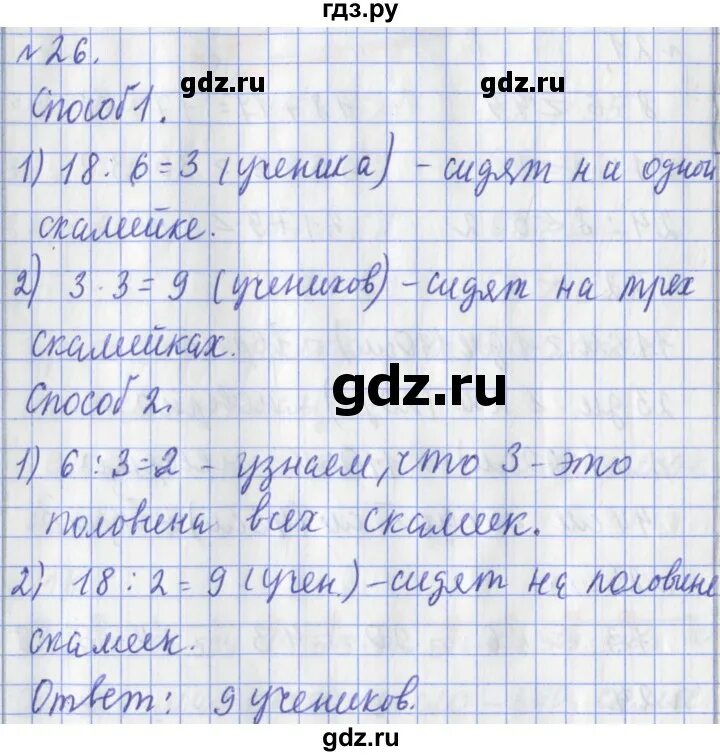 гдз.ру
№26.
gdz.ru gdz.ru
Способ 1.
1) 18 : 6 = 3 (ученика) – сидят на одной
скамейке.
2) 3 · 3 = 9 (учеников) – сидят на трех
скамейках.
gdz.ru
Способ 2.
1) 6 : 3 = 2 – узнаем, что 3 – это
половина всех скамеек.
gdz.ru gdz.ru
2) 18 : 2 = 9 (учен.) – сидят на половине
скамеек.
Ответ: 9 учеников.
gdz.ru